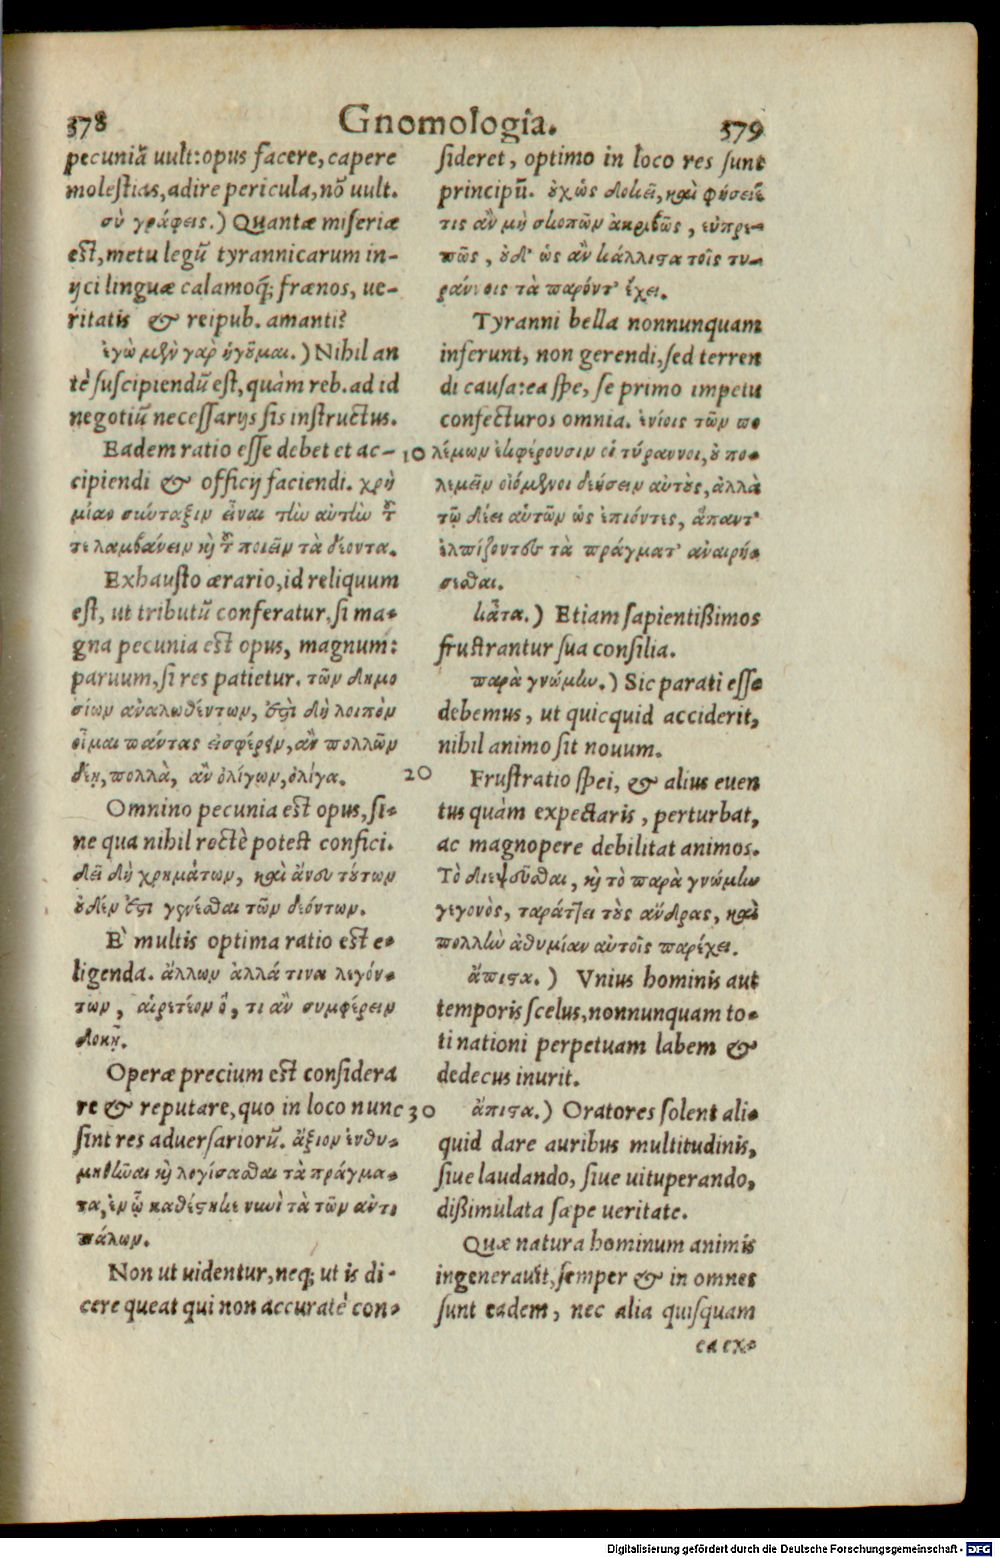 378 Gnomologia. 379
pecuniā uult: opus facere, capere
molestias, adire pericula, nō uult.
σὺ γράφεις.) Quantæ miseriæ
est, metu legū tyrannicarum in-
ijci linguæ calamoq; frænos, ue-
ritatis & reipub. amanti?
ἐγὼ μὲν γὰρ ἡγοῦμαι.) Nihil an
tè suscipiendū est, quàm reb. ad id
negotiū necessarijs sis instructus.
Eadem ratio esse debet et ac-
cipiendi & officij faciendi. χρὴ
μίαν σύνταξιν εἶναι τὴν αὐτὴν τ῀
τε λαμβάνειν κὴ τ῀ ποιεῖν τὰ δέοντα.
Exhausto ærario, id reliquum
est, ut tributū conferatur, si ma-
gna pecunia est opus, magnum:
paruum, si res patietur. τῶν δημο
σίων ἀναλωθέντων, ἔστι δὴ λοιπὸν
οἶμαι πάντας εἰσφέρειν, ἂν πολλῶν
δέῃ, πολλὰ, ἂν ὀλίγων, ὀλίγα.
Omnino pecunia est opus, si-
ne qua nihil rectè potest confici.
δεῖ δὴ χρημάτων, καὶ ἄνευ τούτων
οὐδέν ἔστι γενέσθαι τῶν δεόντων.
E' multis optima ratio est e-
ligenda. ἄλλων ἀλλά τινα λεγόν-
των, αἱρετέον ὅ, τι ἂν συμφέρειν
δοκῇ.
Operæ precium est considera
re & reputare, quo in loco nunc
sint res aduersariorū. ἄξιον ἐνθυ-
μηθῆναι κὴ λογίσασθαι τὰ πράγμα-
τα, ἐν ᾧ καθέστηκε νυνὶ τὰ τῶν ἀντι
πάλων.
Non ut uidentur, neq; ut is di-
cere queat qui non accuratè con-
10
20
30
sideret, optimo in loco res sunt
principū. οὐχ ὡς δοκεῖ, καὶ φήσειέ
τις ἂν μὴ σκοπῶν ἀκριβῶς, εὐπρε-
πῶς, οὐδ' ὡς ἂν κάλλιστα τοῖς τυ-
ράννοις τὰ παρόντ' ἔχει.
Tyranni bella nonnunquam
inferunt, non gerendi, sed terren
di causa: ea spe, se primo impetu
confecturos omnia. ἐνίοις τῶν πο
λέμων ἐκφέρουσιν οἱ τύραννοι, οὐ πο-
λεμεῖν οἰόμενοι δεήσειν αὐτοὺς, ἀλλὰ
τῷ δέει αὐτῶν ὡς ἐπιόντες, ἅπαντ'
ἐλπίζοντες τὰ πράγματ' ἀναιρή-
σεσθαι.
κᾆτα.) Etiam sapientißimos
frustrantur sua consilia.
παρὰ γνώμην.) Sic parati esse
debemus, ut quicquid acciderit,
nihil animo sit nouum.
Frustratio spei, & alius euen
tus quàm expectaris, perturbat,
ac magnopere debilitat animos.
Τὸ διεψεῦσθαι, κὴ τὸ παρὰ γνώμην
γεγονὸς, ταράττει τοὺς ἄνδρας, καὶ
πολλὴν ἀθυμίαν αὐτοῖς παρέχει.
ἄπιστα.) Vnius hominis aut
temporis scelus, nonnunquam to-
ti nationi perpetuam labem &
dedecus inurit.
ἄπιστα.) Oratores solent ali-
quid dare auribus multitudinis,
siue laudando, siue uituperando,
dißimulata sæpe ueritate.
Quæ natura hominum animis
ingenerauit, semper & in omnes
sunt eadem, nec alia quisquam
ea ex-
Digitalisierung gefördert durch die Deutsche Forschungsgemeinschaft - DFG